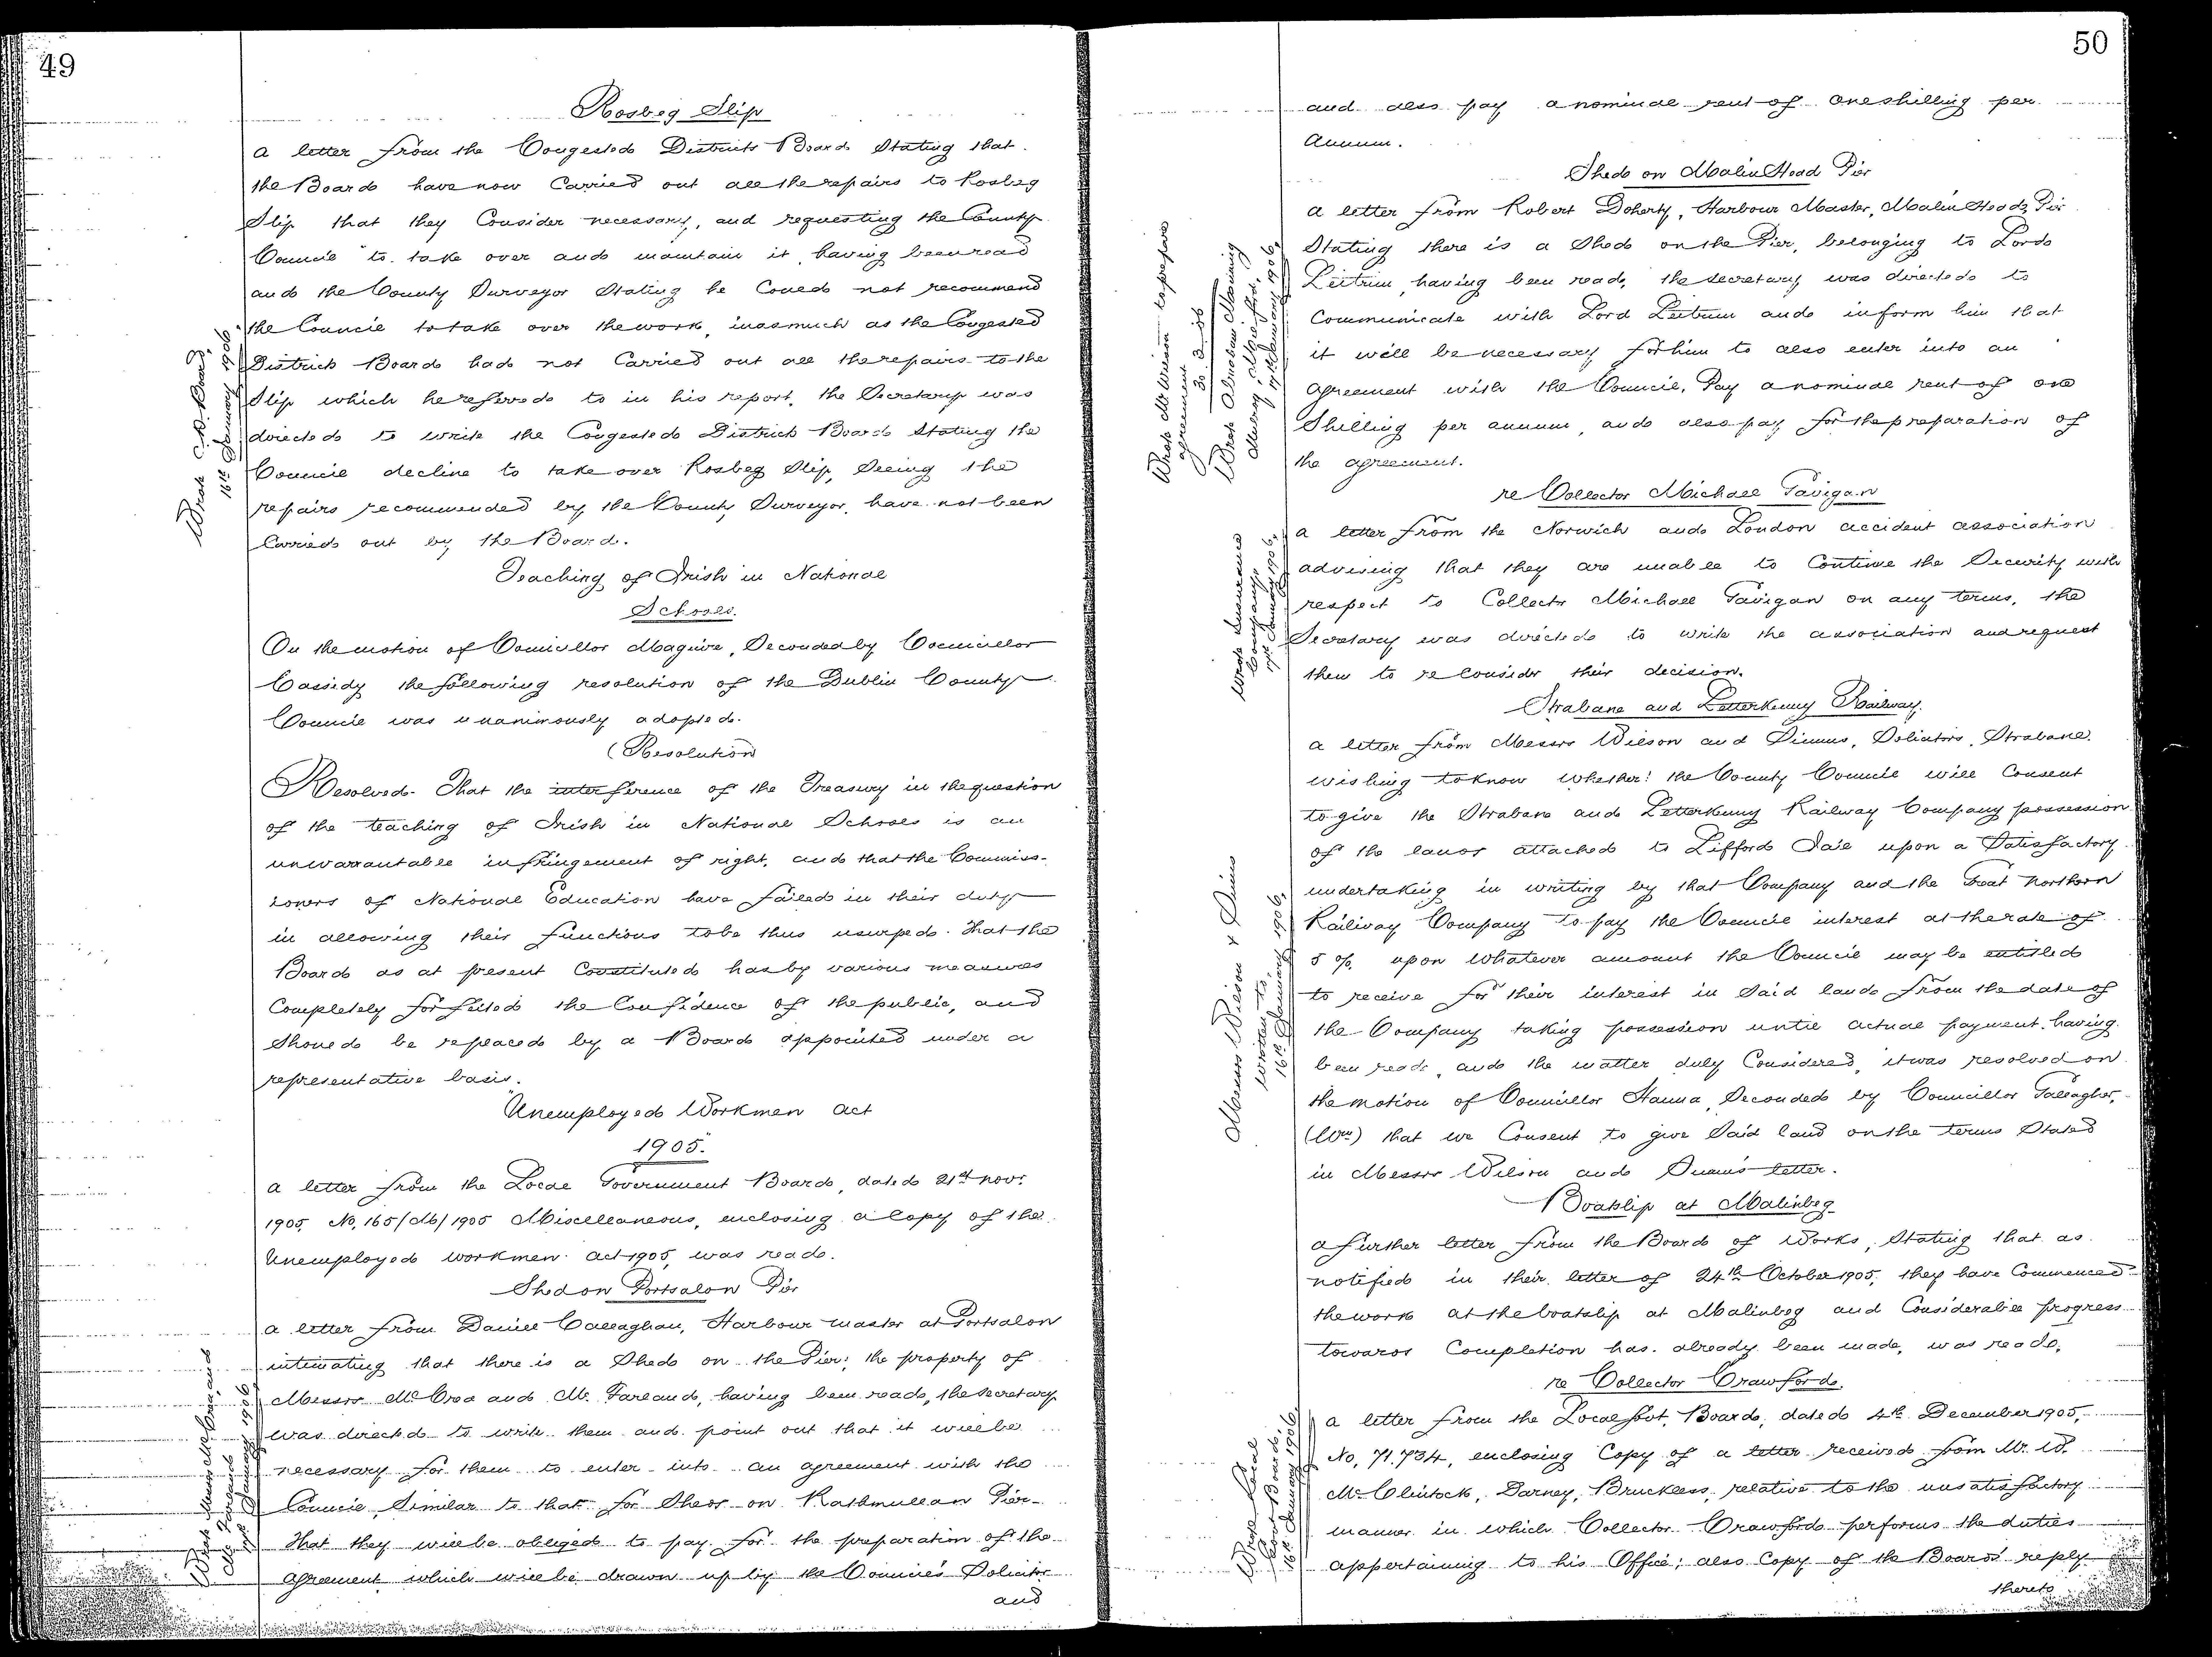 49
Rosbeg Slip
a letter from the Congested Districts Board Stating that
the Board have now Carried out all the repairs to Rosbeg
Slip that they Consider necessary, and requesting the County
Council to take over and maintain it, having been read
and the County Surveyor Stating he Could not recommend
the Council to take over the work, inasmuch as the Congested
District Board had not Carried out all the repairs to the
Slip which he referred to in his report, the Secretary was
directed to write the Congested District Board Stating the
Council decline to take over Rosbeg Slip, Seeing the
repairs recommended by the County Surveyor, have not been
Carried out by the Board.
Wrote C.D. Board,
16th January 1906
Teaching of Irish in National
Schools.
On the motion of Councillor Maguire, Seconded by Councillor
Cassidy the following resolution of the Dublin County
Council was unanimously adopted.
(Resolution
Resolved- That the interference of the Treasury in the question
of the teaching of Irish in National Schools is an
unwarrantable infringement of right, and that the Commiss-
ioners of National Education have failed in their duty
in allowing their functions to be thus usurped. That the
Board as at present Constituted has by various measures
Completely forfeited the Confidence of the public, and
Should be replaced by a Board appointed under a
representative basis.
"Unemployed Workmen Act
1905."
a letter from the Local Government Board, dated 21st Novr
1905, No. 165/M/1905 Miscellaneous, enclosing a Copy of the
Unemployed Workmen Act 1905, was read.
Shed on Portsalon Pier
a letter from Daniel Callaghan, Harbour Master at Portsalon
intimating that there is a Shed on the Pier, the property of
Messrs McCrea and McFarland, having been read, the Secretary
was directed to write them and point out that it will be
necessary for them to enter into an agreement with the
Council, Similar to that for Shed on Rathmullan Pier-
That they will be obliged to pay for the preparation of the
agreement which will be drawn up by the Council's Solicitor
and
Wrote Messrs McCrea and
McFarland
17th January 1906
50
and also pay a nominal rent of one shilling per
Annum.
Wrote Mr Wilson to prepare
agreement
30.3.06
Shed on Malin Head Pier
a letter from Robert Doherty, Harbour Master, Malin Head Pier
Stating there is a Shed on the Pier, belonging to Lord
Leitrim, having been read, the Secretary was directed to
Communicate with Lord Leitrim and inform him that
it will be necessary for him to also enter into an
agreement with the Council, Pay a nominal rent of one
Shilling per annum, and also pay for the preparation of
the agreement.
re Collector Michael Gavigan
a letter from the Norwich and London accident association
advising that they are unable to Continue the Security with
respect to Collector Michael Gavigan on any terms, the
Secretary was directed to write the association and request
them to reconsider their decision.
Wrote Insurance
Company,
17th January 1906,
Strabane and Letterkenny Railway.
a letter from Messrs Wilson and Simms, Solicitors, Strabane.
wishing to know whether the County Council will Consent
to give the Strabane and Letterkenny Railway Company possession
of the lands attached to Lifford Jail upon a Satisfactory
undertaking in writing by that Company and the Great Northern
Railway Company to pay the Council interest at the rate of
5 %. upon whatever amount the Council may be entitled
to receive for their interest in Said lands from the date of
the Company taking possession until actual payment having
been read, and the matter duly Considered, it was resolved on
the motion of Councillor Hanna, Seconded by Councillor Gallagher,
(Wm) that we Consent to give Said land on the terms Stated
in Messrs Wilson and Simms letter.
Messrs Wilson & Simms
written to,
16th January 1906,
Boatslip at Malinbeg
a further letter from the Board of Works, Stating that as
notified in their letter of 24th October 1905, they have Commenced
the work at the boatslip at Malinbeg and Considerable progress
towards Completion has already been made, was read.
re Collector Crawford.
a letter from the Local Govt. Board, dated 4th December 1905,
No, 71.734, enclosing Copy of a letter received from Mr. W.
McClintock, Darney, Bruckless, relative to the unsatisfactory
manner in which Collector Crawford performs the duties
appertaining to his Office; also Copy of the Board's reply
thereto
Wrote Local
Govt Board,
16th January 1906